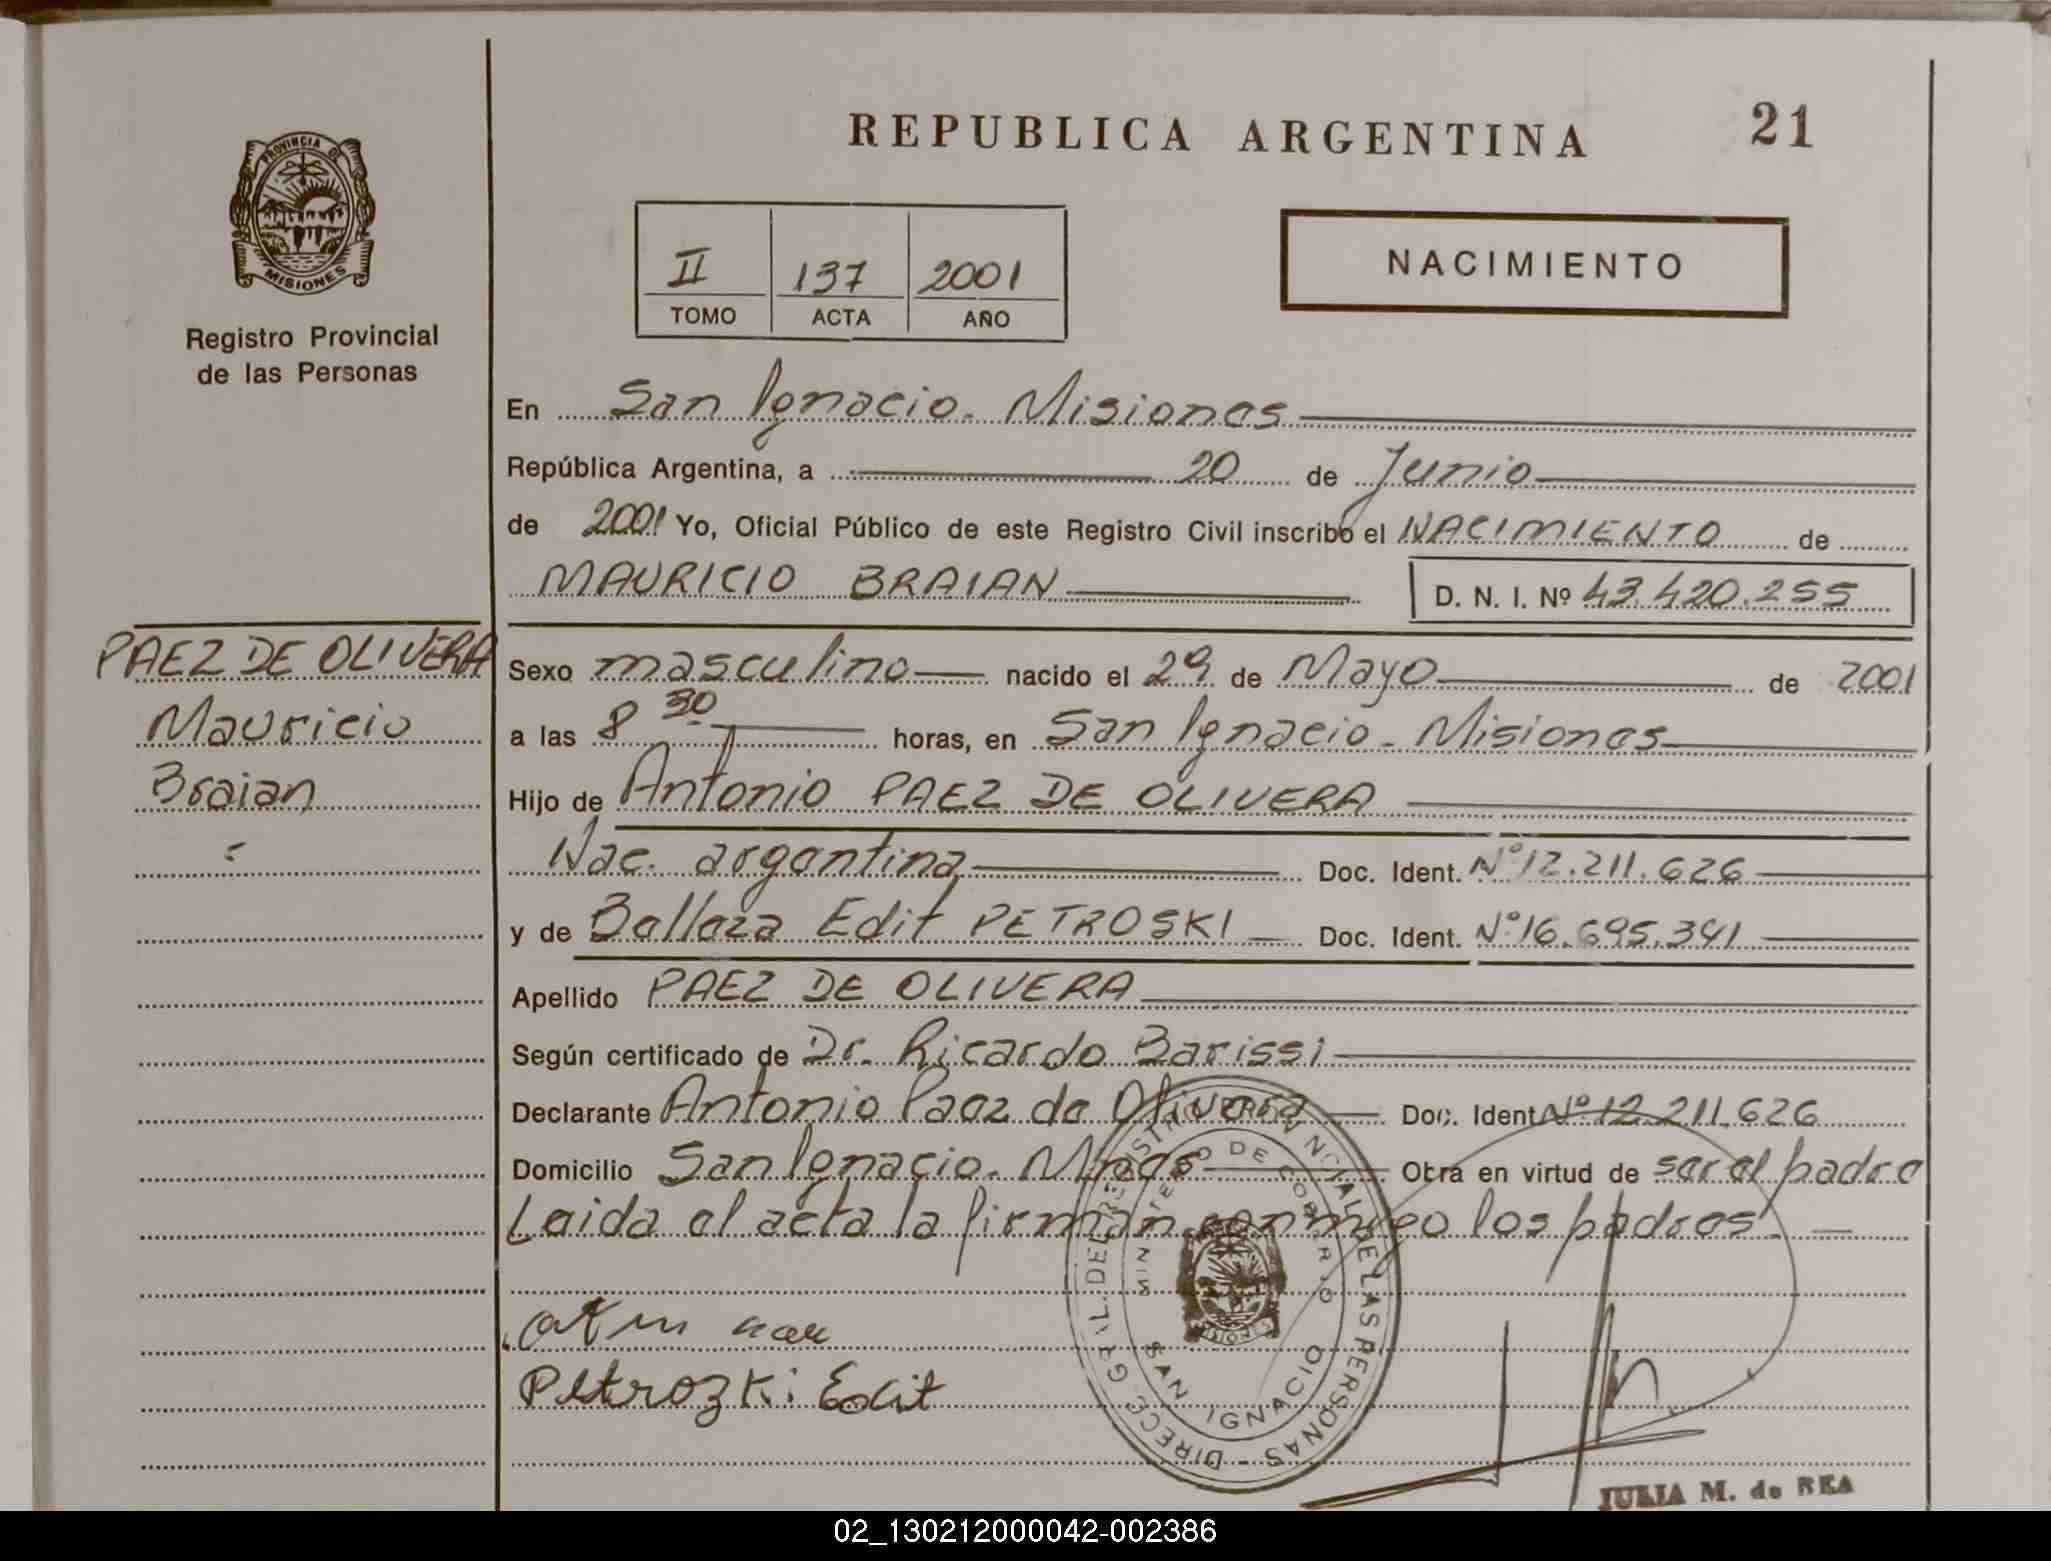 REPUBLICA ARGENTINA
21
PROVINCIA DE
MISIONES
Registro Provincial
de las Personas
II 137 2001
TOMO ACTA AÑO
NACIMIENTO
En San Ignacio. Misiones
República Argentina, a 20 de Junio
de 2001 Yo, Oficial Público de este Registro Civil inscribo el NACIMIENTO de
MAURICIO BRAIAN D. N. I. Nº 43.420.255
PAEZ DE OLIVERA
Mauricio
Braian
Sexo masculino nacido el 29 de Mayo de 2001
a las 8 30 horas, en San Ignacio - Misiones
Hijo de Antonio PAEZ DE OLIVERA
Nac. argentina Doc. Ident. Nº 12.211.626
y de Edit PETROSKI Doc. Ident. Nº 16.695.341
Apellido PAEZ DE OLIVERA
Según certificado de Dr. Ricardo Barissi
Declarante Antonio Paez de Olivera Doc. Ident Nº 12.211.626
Domicilio San Ignacio. Mnes Obra en virtud de ser el padre
Leida el acta la firman conmigo los padres.
Petrozki Edit
DIRECC GRAL. DEL REGISTRO PROVINCIAL DE LAS PERSONAS
MINISTERIO DE GOBIERNO
SAN IGNACIO
JULIA M. de REA
02_130212000042-002386